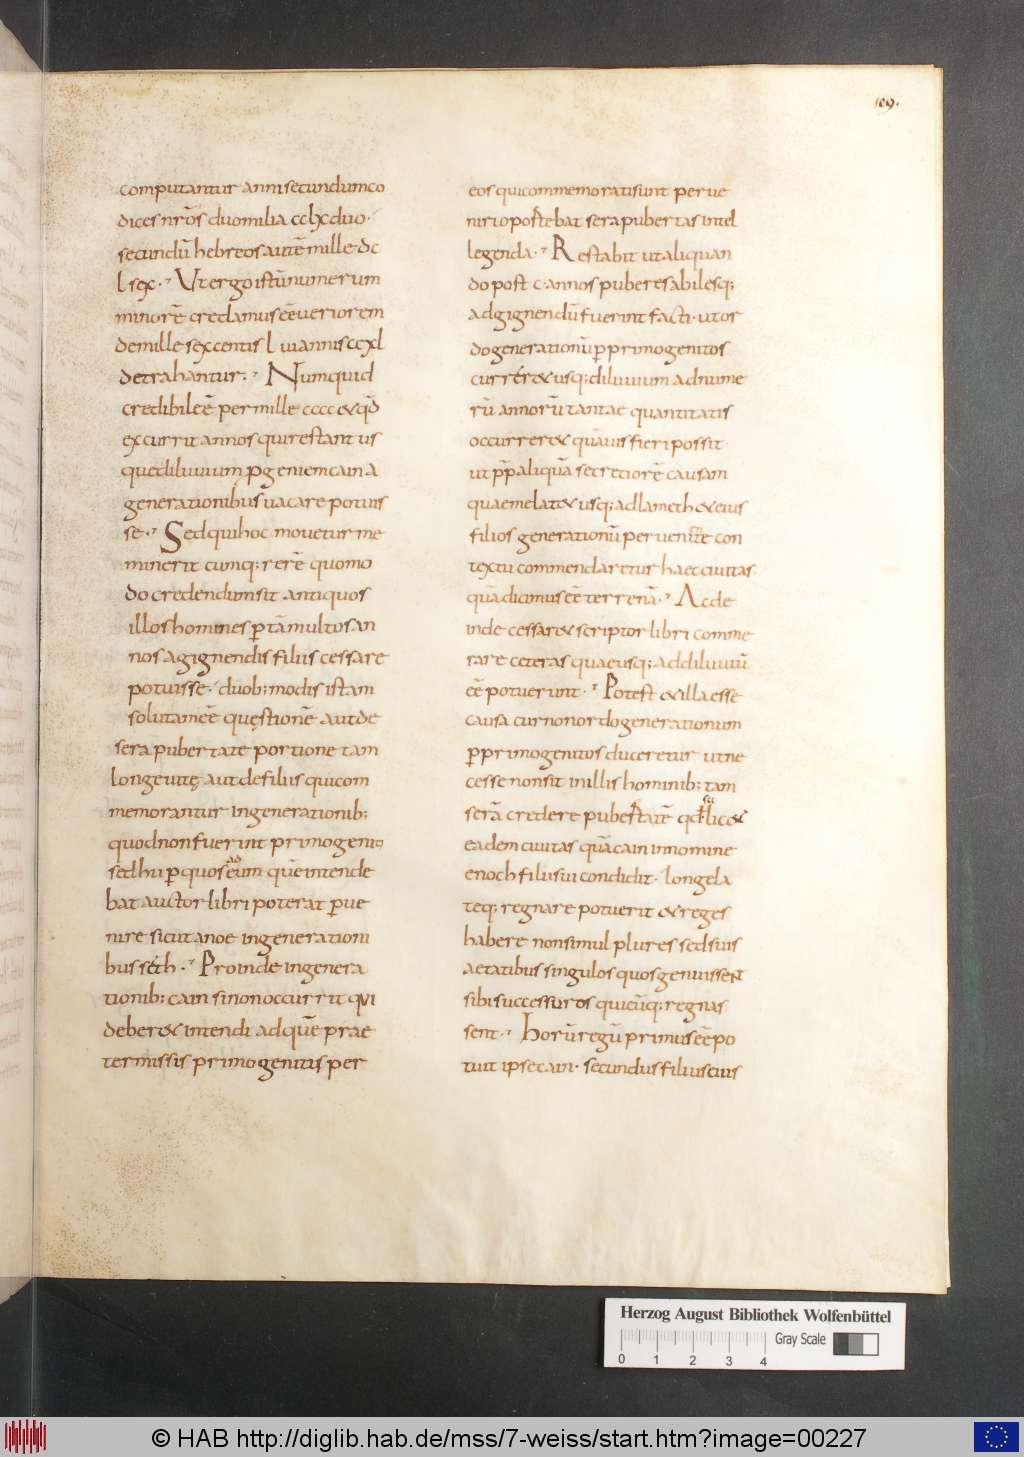 109.
computantur anni secundum co
dices nr̄os duo milia cclxc duo·
secundū hebreos autē mille dc
l sex· Ut ergo istū numerum
minorē credamus eē veriorem
de mille sexcentis l vi annis ccxl
detrahantur· Numquid
credibile ē per mille cccc & qđ
excurrit annos qui restant us
que diluuium progeniem cain a
generationibus uacare potuis
se· Sed qui hoc mouetur me
minerit cumq; rerē quomo
do credendum sit antiquos
illos homines p tā multos an
nos a gignendis filiis cessare
potuisse· duob; modis istam
solutam eē quęstionē aut de
sera pubertate portione tam
longeuitę aut de filiis qui com
memorantur in generationib;
quod non fuerint primogeniti
sed hii p quos eum quē intende
bat auctor libri poterat p ue
nire sicut a noe in generationi
bus séth· Proinde in genera
tionib; cain si non occurrit qui
deber& intendi ad quē prae
termissis primogenitis per
eos qui commemorati sunt perue
niri oportebat sera pubertas intel
legenda· Restabit ut aliquan
do post c· annos puberes abilesq;
ad gignendū fuerint facti· ut or
do generationū p primogenitos
currér& usq; diluuium ad nume
rū annorū tantae quantitatis
occurrer& quāuis fieri possit
ut pp̄ aliquā secretiorē causam
quae me lat& usq; ad lameth & eius
filios generationū peruenire con
textu commendaretur haec ciuitas
quā dicimus eē terrenā· Ac de
inde cessar& scriptor libri comme
rare ceteras quae usq; ad diluuiū
eē potuerunt· Potest & illa esse
causa cur non ordo generationum
p primogenitos duceretur ut ne
cesse non sit in illis hominib; tam
serā credere pubertatē qđ scilic&
eadem ciuitas quā cain in nomine
enoch filii sui condidit· longe la
teq; regnare potuerit & reges
habere non simul plures sed suis
aetatibus singulos quos genuissent
sibi successuros quicūq; regnas
sent· horū regū primus eē po
tuit ipse cain· secundus filius eius
Herzog August Bibliothek Wolfenbüttel
Gray Scale
0 1 2 3 4
© HAB http://diglib.hab.de/mss/7-weiss/start.htm?image=00227